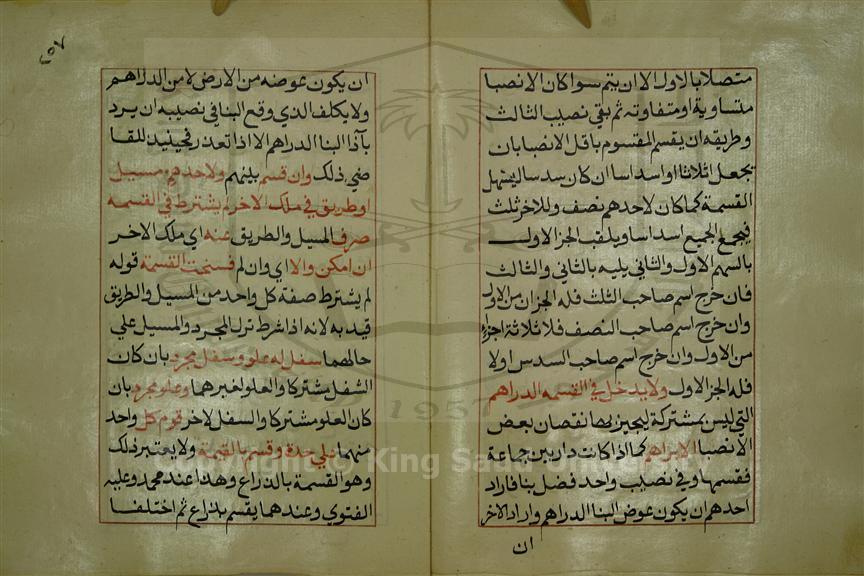 متصلا بالاول الا ان يتم سوا كان الانصبا
متساوية او متفاوته ثم بقى نصيب الثالث
وطريقه ان يقسم المقسوم باقل الانصبا بان
يجعل اثلاثا او اسداسا ان كان سدسا ليسهل
القسمة كما كان لاحدهم نصف وللاخر ثلث
فيجمع الجميع اسداسا ويلقب الجز الاول
بالسهم الاول والثانى يليه بالثانى والثالث
فان خرج اسم صاحب الثلث فله الجزان من الاول
وان خرج اسم صاحب النصف فله ثلاثة اجزاء
من الاول وان خرج اسم صاحب السدس اولا
فله الجز الاول ولا يدخل في القسمه الدراهم
التي ليس بمشتركة ليجيز بها نقصان بعض
الانصبا الا برضاهم كما اذا كانت دار بين جماعة
فقسمها وفي نصيب واحد فضل بنا فاراد
احدهم ان يكون عوض البنا الدراهم واراد الاخر
ان
٢٥٧
ان يكون عوضه من الارض لا من الدراهم
ولا يكلف الذي وقع البنا في نصيبه ان يرد
بآذا البنا الدراهم الا اذا تعذر فحينيذ للقا
ضي ذلك وان قسم بينهم ولاحدهم مسيل
او طريق في ملك الاخر لم يشترط في القسمه
صرف المسيل والطريق عنه اي ملك الاخر
ان امكن والا اي وان لم فسخت القسمة قوله
لم يشترط صفة كل واحد من المسيل والطريق
قيد به لانه اذا شرط ترك المجرد والمسيل علي
حالهما سفل له علو وسفل مجرد بان كان
السفل مشتركا والعلو لغيرهما وعلو مجرد بان
كان العلو مشتركا والسفل لاخر قوم كل واحد
منهما علي حدة وقسم بالقيمة ولا يعتبر ذلك
وهو القسمة بالذراع وهذا عند محمد وعليه
الفتوي وعندهما يقسم بذراع ثم اختلفا
Copyright © King Saud University
1957